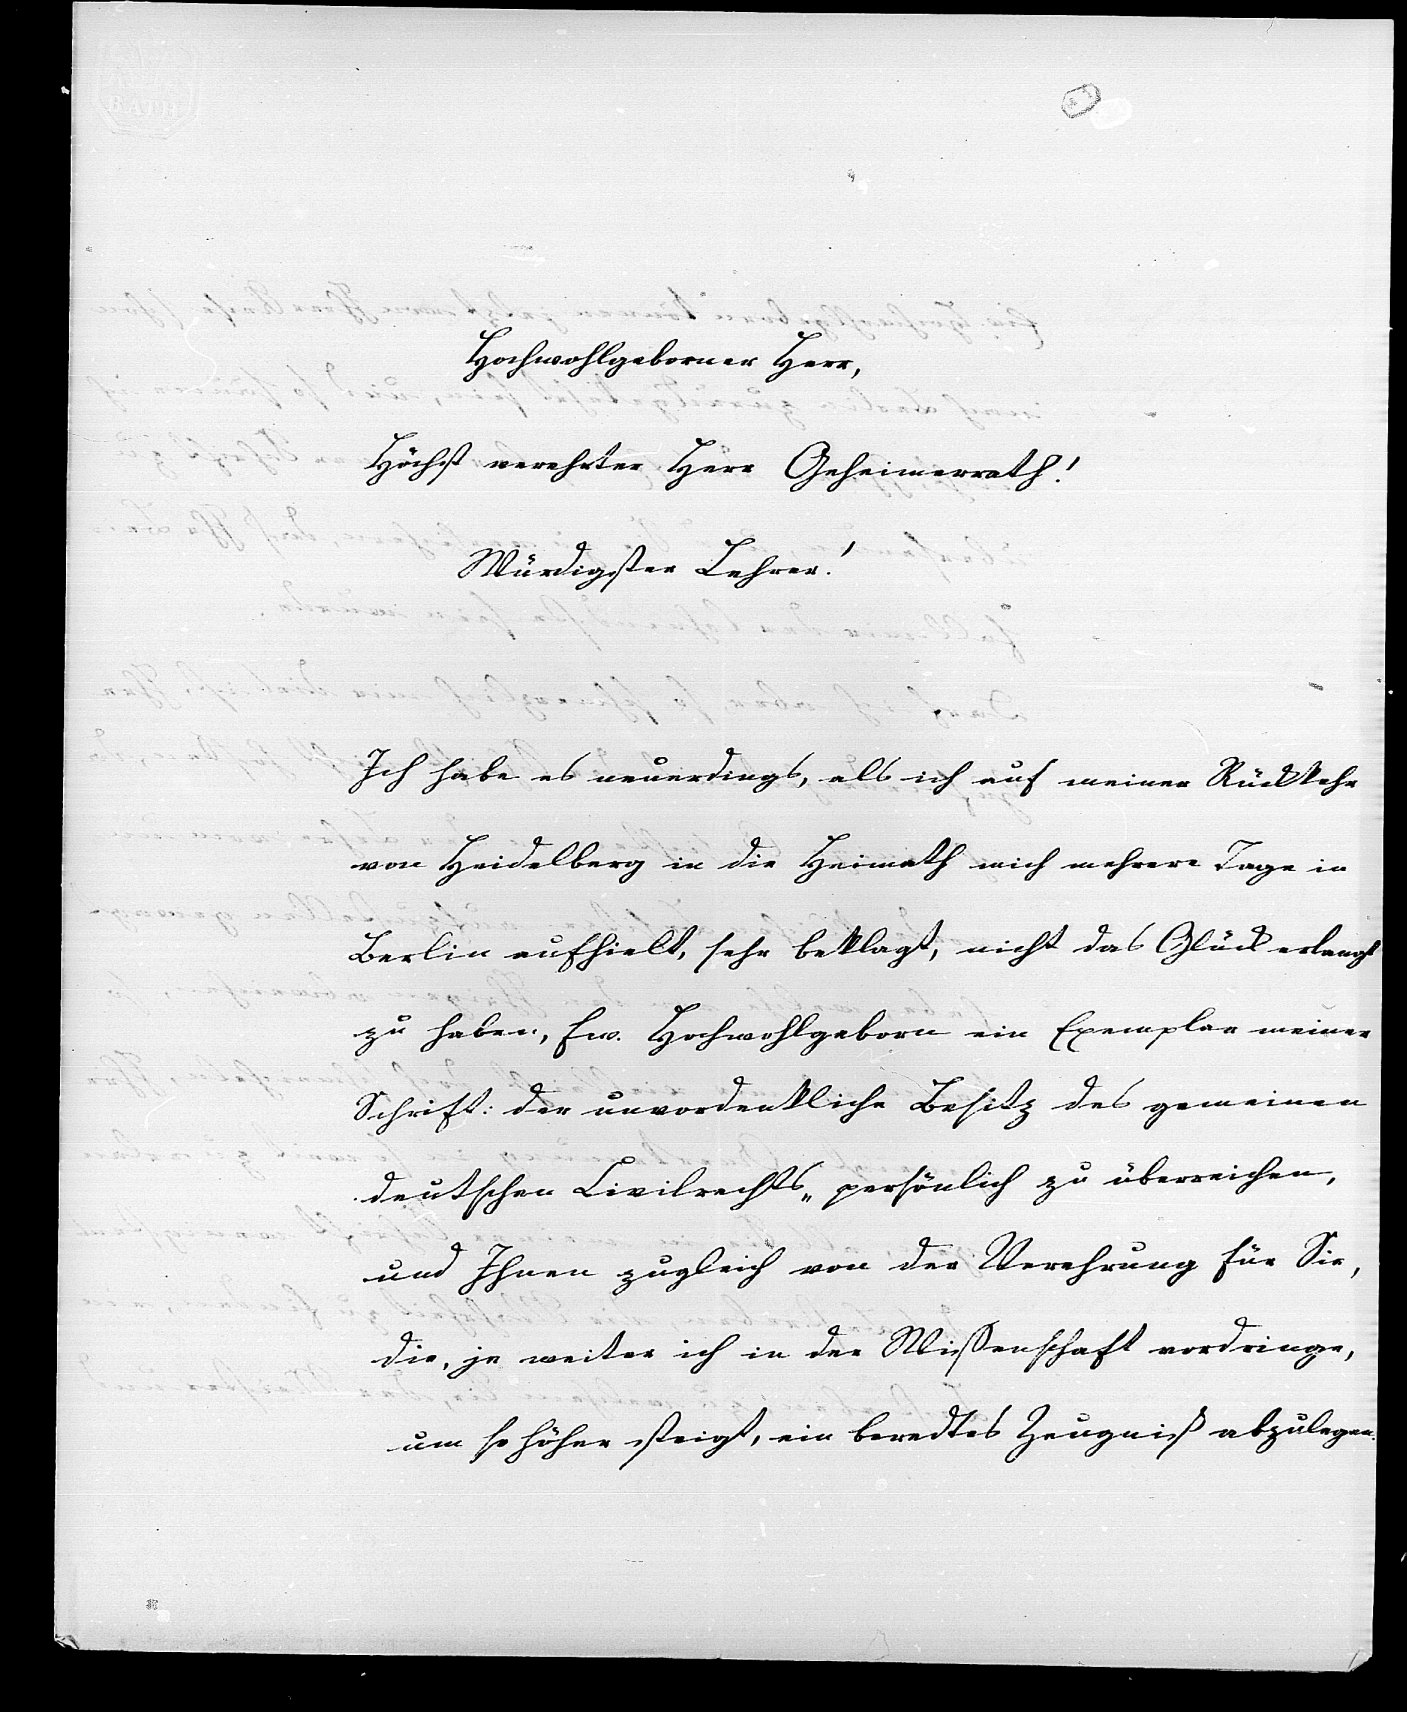 Hochwohlgeborner Herr,
Höchst verehrter Herr Geheimerrath!
Würdigster Lehrer!
Ich habe es neuerdings, als ich auf meiner Rückkehr
von Heidelberg in die Heimath mich mehrere Tage in
Berlin aufhielt, sehr beklagt, nicht das Glück erlangt
zu haben, Ew. Hochwohlgeborn ein Exemplar meiner
Schrift: der unvordenkliche Besitz des gemeinen
deutschen Civilrechts„ persönlich zu überreichen,
und Ihnen zugleich von der Verehrung für Sie,
die, je weiter ich in der Wissenschaft vordringe,
um so höher steigt, ein beredtes Zeugniß abzulegen.